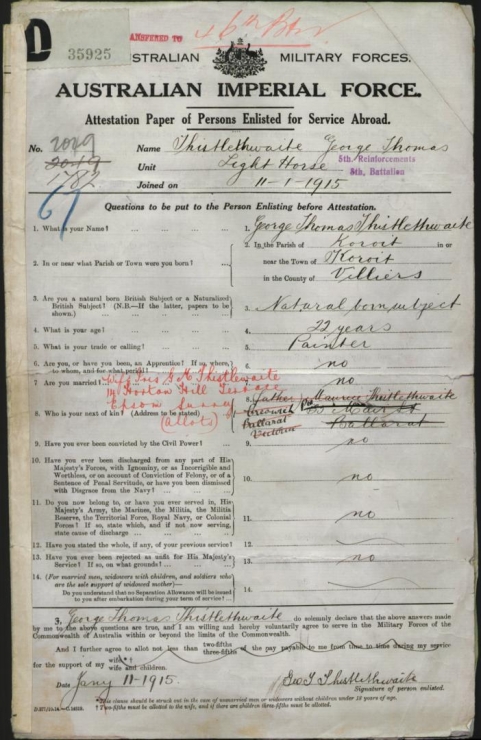 D
35925
TRANSFERRED TO 46th Btn
AUSTRALIAN MILITARY FORCES.
AUSTRALIAN IMPERIAL FORCE.
Attestation Paper of Persons Enlisted for Service Abroad.
No. 2049
2049
178
67
Name Thistlethwaite George Thomas
Unit Light Horse 8th Reinforcements
8th, Battalion
Joined on 11-1-1915
Questions to be put to the Person Enlisting before Attestation.
1. What is your Name? ... 1. George Thomas Thistlethwaite
2. In or near what Parish or Town were you born? ... 2. In the Parish of Koroit in or
near the Town of Koroit
in the County of Villiers
3. Are you a natural born British Subject or a Naturalized British Subject? (N.B.—If the latter, papers to be shown.) ... 3. Natural born subject
4. What is your age? ... 4. 22 years
5. What is your trade or calling? ... 5. Painter
6. Are you, or have you been, an Apprentice? If so, where, to whom, and for what period? 6. no
7. Are you married? 7. no
Wife Mrs G M Thistlethwaite
Hill Terrace
Epsom
(allots)
8. Who is your next of kin? (Address to be stated) 8. Father Maurice Thistlethwaite
Main St
Ballarat
Ballarat
Victoria
9. Have you ever been convicted by the Civil Power? ... 9. no
10. Have you ever been discharged from any part of His Majesty's Forces, with Ignominy, or as Incorrigible and Worthless, or on account of Conviction of Felony, or of a Sentence of Penal Servitude, or have you been dismissed with Disgrace from the Navy? ... 10. no
11. Do you now belong to, or have you ever served in, His Majesty's Army, the Marines, the Militia, the Militia Reserve, the Territorial Force, Royal Navy, or Colonial Forces? If so, state which, and if not now serving, state cause of discharge ... 11. no
12. Have you stated the whole, if any, of your previous service? 12.
13. Have you ever been rejected as unfit for His Majesty's Service? If so, on what grounds? ... 13. no
14. (For married men, widowers with children, and soldiers who are the sole support of widowed mother—
Do you understand that no Separation Allowance will be issued to you after embarkation during your term of service? ... 14.
3. George Thomas Thistlethwaite do solemnly declare that the above answers made
by me to the above questions are true, and I am willing and hereby voluntarily agree to serve in the Military Forces of the
Commonwealth of Australia within or beyond the limits of the Commonwealth.
And I further agree to allot not less than two-fifths three-fifths of the pay payable to me from time to time during my service
for the support of my wife* wife and children.
Date Jany 11-1915. Geo T Thistlethwaite
Signature of person enlisted.
* This clause should be struck out in the case of unmarried men or widowers without children under 18 years of age.
† Two-fifths must be allotted to the wife, and if there are children three-fifths must be allotted.